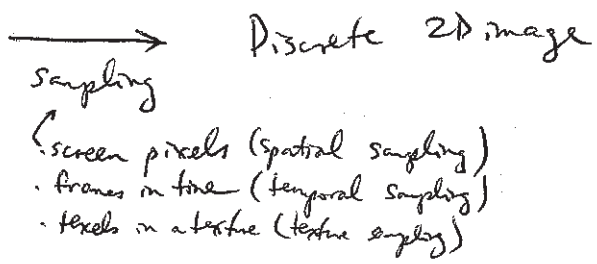 Discrete 2D image
sampling
· screen pixels (spatial sampling)
· frames in time (temporal sampling)
· texels in a texture (texture sampling)